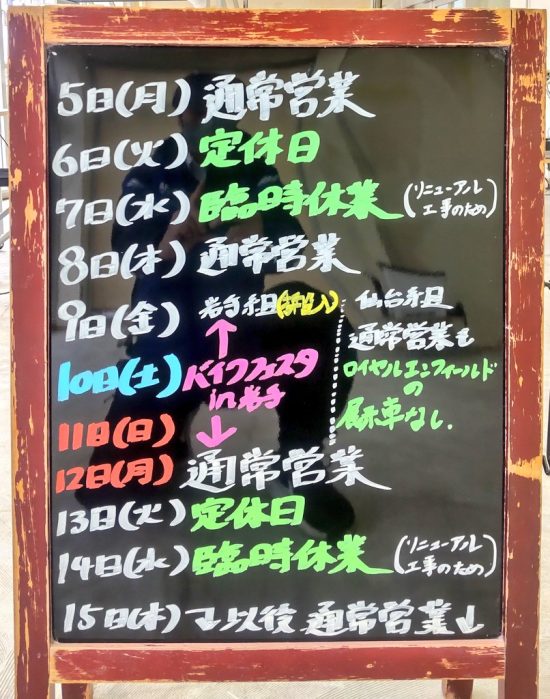 5日(月) 通常営業
6日(火) 定休日
7日(水) 臨時休業 (リニューアル
工事のため)
8日(木) 通常営業
9日(金) 岩手組(搬入) 仙台組
↑ 通常営業も
10日(土) バイクフェスタ ロイヤルエンフィールド
in岩手 の
11日(日) ↓ 展示車なし.
12日(月) 通常営業
13日(火) 定休日
14日(水) 臨時休業 (リニューアル
工事のため)
15日(木) ↴以後 通常営業↓